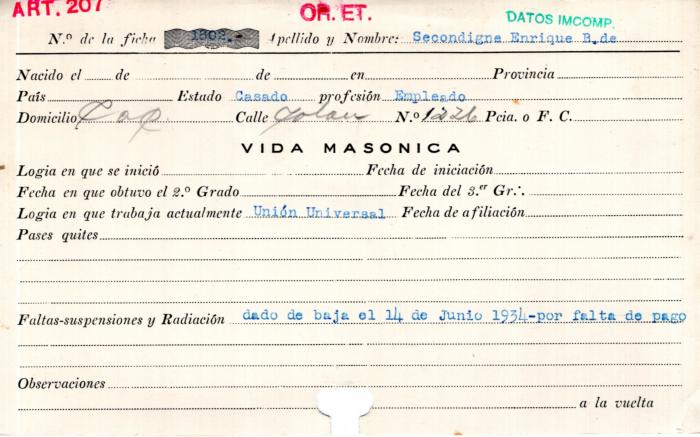 ART. 207 OR. ET. DATOS IMCOMP.
N.º de la ficha 1802.- Apellido y Nombre: Secondigne Enrique B.de
Nacido el de de en Provincia
País Estado Casado profesión Empleado
Domicilio Cap Calle Colon N.º 1226 Pcia. o F. C.
VIDA MASONICA
Logia en que se inició Fecha de iniciación
Fecha en que obtuvo el 2.º Grado Fecha del 3.er Gr∴
Logia en que trabaja actualmente Unión Universal Fecha de afiliación
Pases quites
Faltas-suspensiones y Radiación dado de baja el 14 de Junio 1934-por falta de pago
Observaciones
a la vuelta